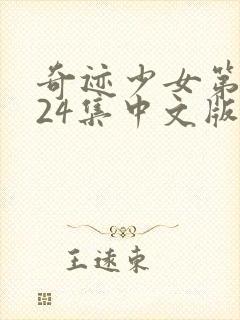 奇迹少女第
24集中文版
王逺东